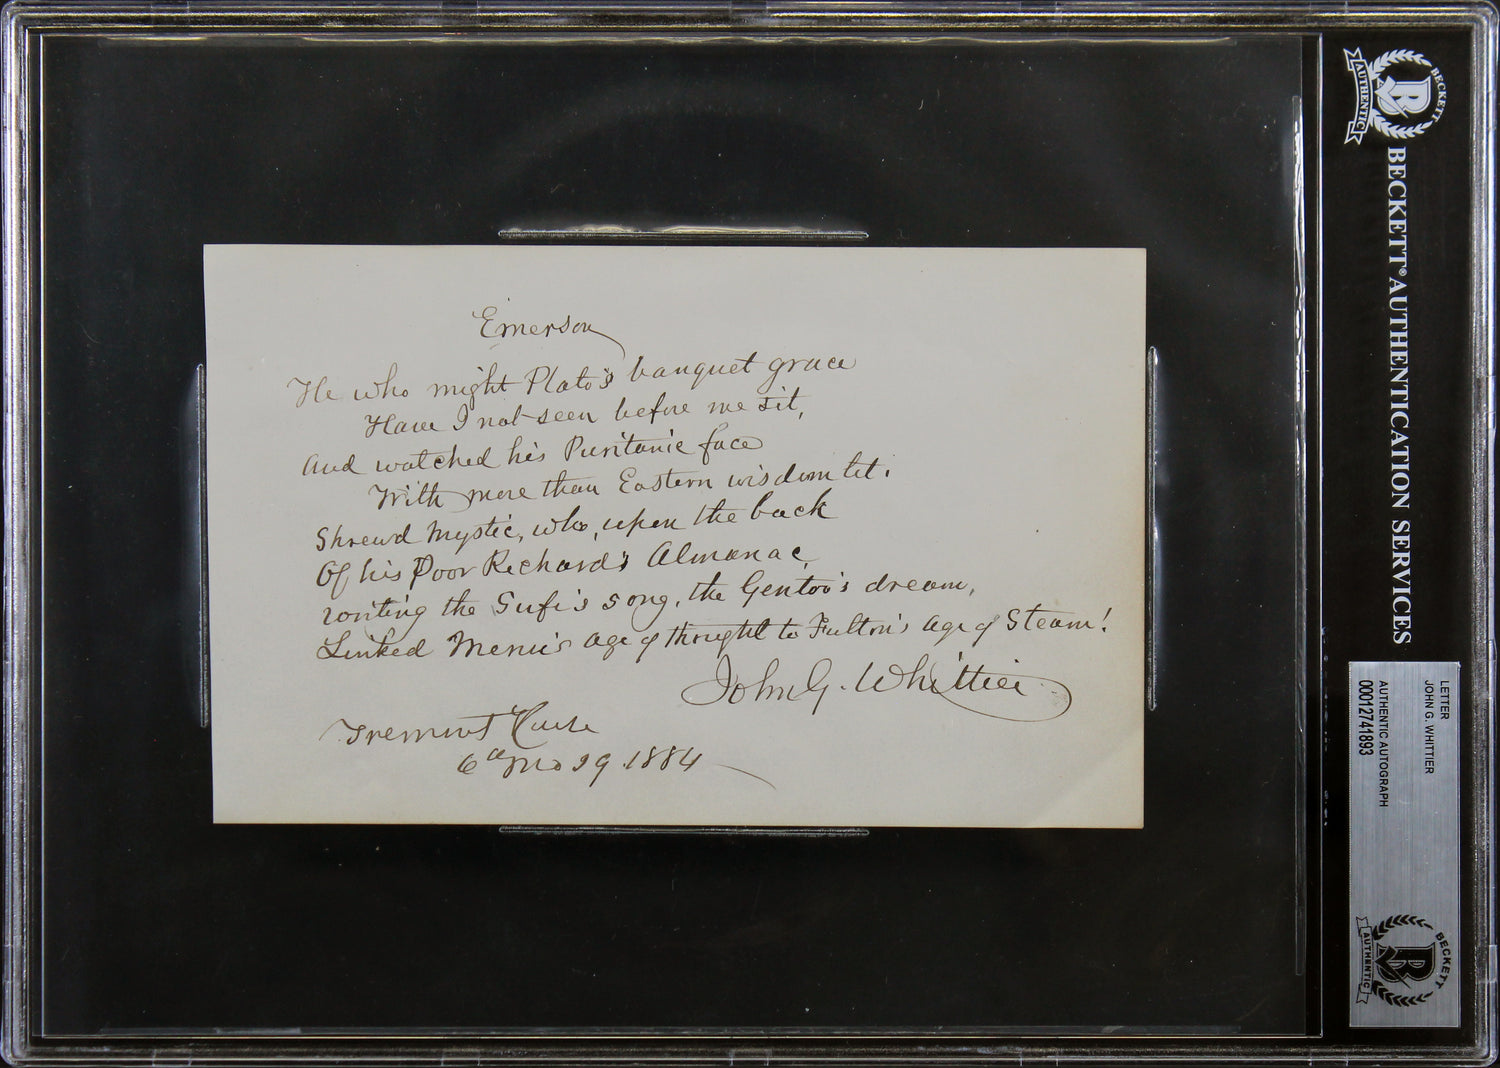 Emerson
He who might Plato's banquet grace
Have I not seen before me sit,
And watched his Puritanic face
With more than Eastern wisdom lit.
Shrewd Mystic, who, upon the back
Of his Poor Richard's Almanac,
writing the Sufi's song, the Gentoo's dream,
Linked Menu's age of thought to Fulton's age of Steam!
John G. Whittier
Tremont House
6th Mo 29 1884
BECKETT
AUTHENTIC
BECKETT® AUTHENTICATION SERVICES
LETTER
JOHN G. WHITTIER
AUTHENTIC AUTOGRAPH
00012741893
BECKETT
AUTHENTIC